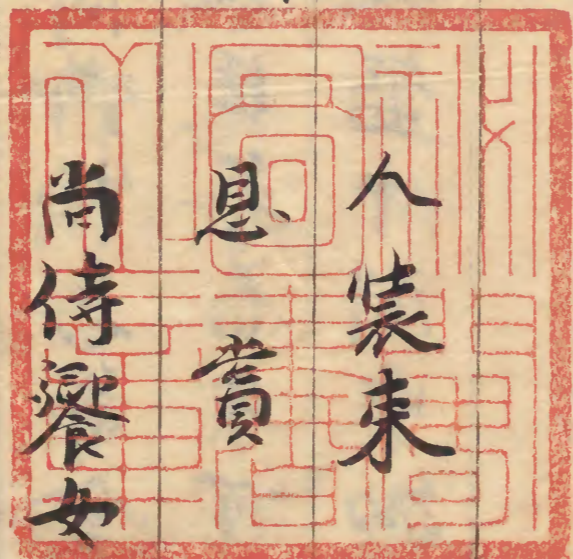 人装束
恩賞
尚侍饗女